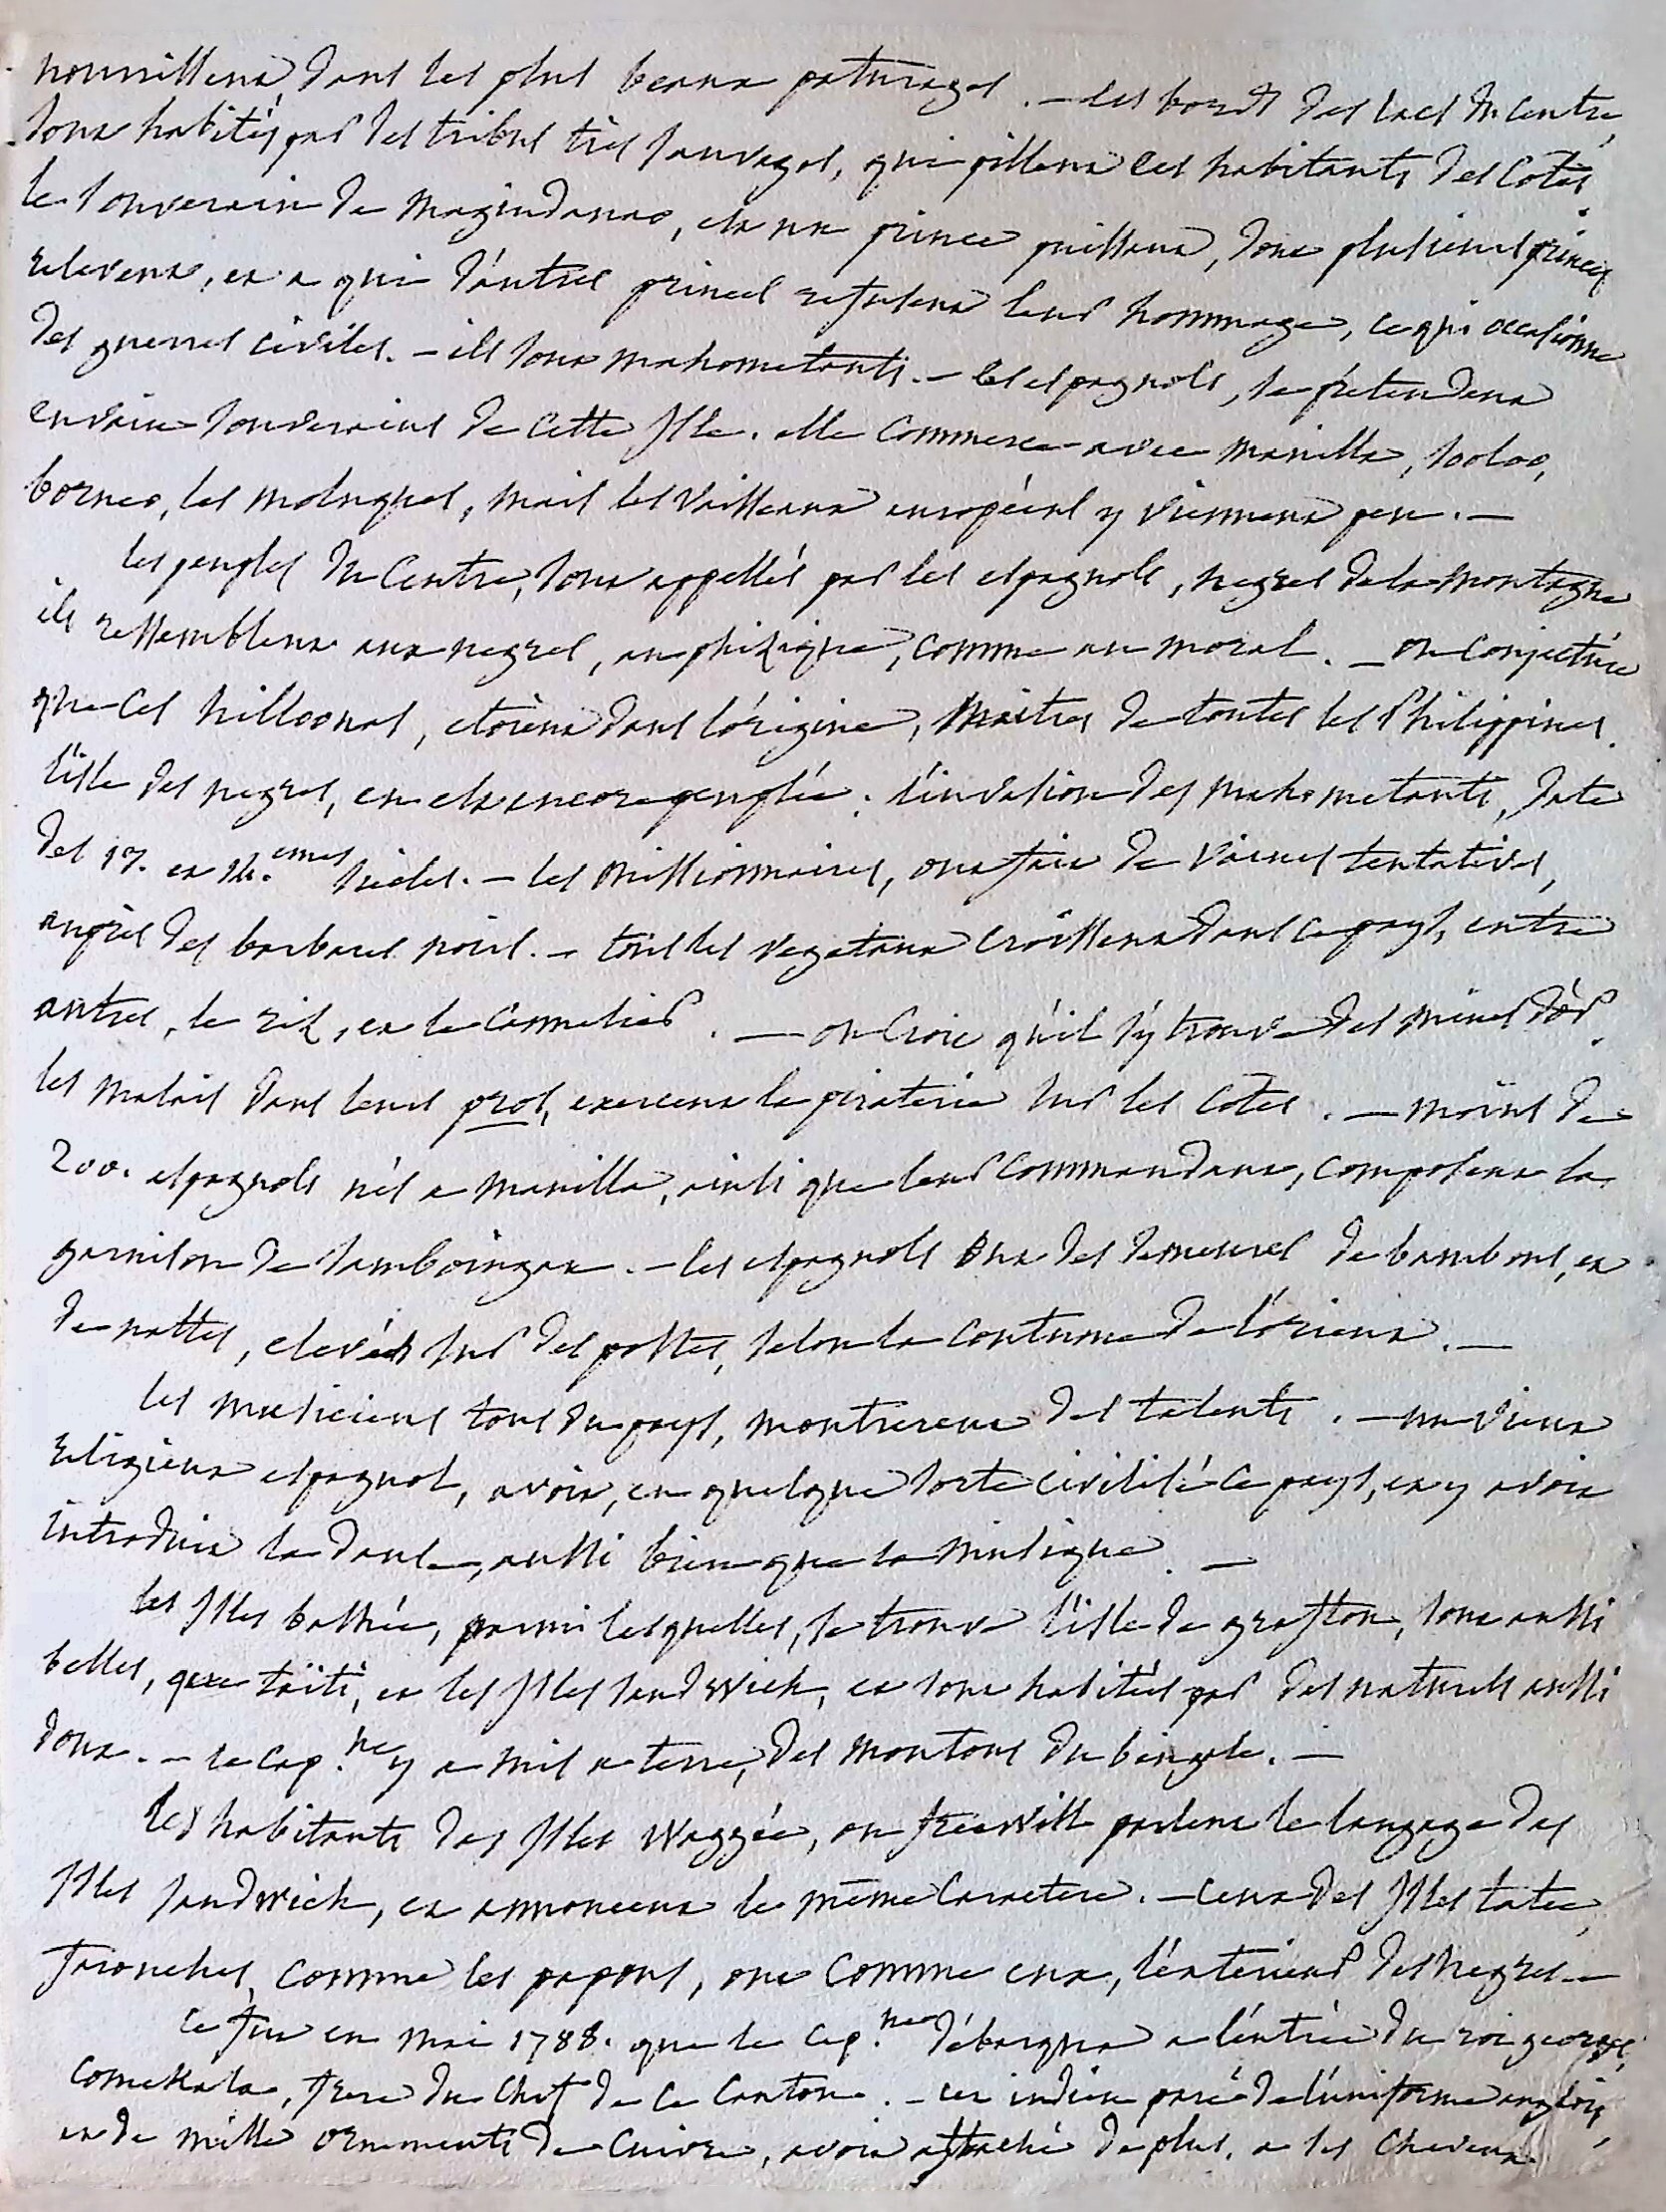 nourrissent, dans les plus beaux paturages. — les bords des lacs du centre,
sont habités par des tribus très sauvages, qui pillent les habitants des cotes.
le souverain de magindanao, est un prince puissant, dont plusieurs princes
relevent, et a qui d'autres princes refusent leur hommage, ce qui occasionne
des guerres civiles. — ils sont mahometants. — les espagnols, se prétendent
en vain souverains de cette Isle. elle commerce avec manille, Soloo,
borneo, les moluques, mais les vaisseaux européens y viennent peu. —
les peuples du Centre, sont appellés par les espagnols, negres de la montagne
ils ressemblent aux negres, au phizique, comme au moral. — on conjecture
que ces hilloonas, etoient dans l'origine, maitres de toutes les Philippines.
l'isle des negres, en est encore peuplée. l'invasion des mahometants, date
des 13. et 14.emes siecles. — les missionnaires, ont fait de vaines tentatives,
auprès des barbares noirs. — tous les vegetaux croissent dans ce pays, entre
autres, le riz, et le cannelier. — on croit qu'il s'y trouve des mines d'or.
les malais dans leurs pros, exercent la piraterie sur les cotes. — moins de
200. espagnols nés a manille, ainsi que leur commandant, composent la
garnison de Samboingan. — les espagnols ont des demeures de bambous, et
de nattes, elevées sur des postes, selon la coutume de l'orient. —
les musiciens tous du pays, montrerent des talents. — un vieux
religieux espagnol, avoit, en quelque sorte civilisé ce pays, et y avoit
introduit la danse, aussi bien que la musique. —
les Isles bashée, parmi lesquelles, se trouve l'isle de grafton, sont aussi
belles, que taïti, et les Isles sandwich, et sont habitées par des naturels aussi
doux. — le cap.ne y a mis a terre, des moutons du bengale. —
les habitants des Isles waggée, ou freewill parlent le langage des
Isles sandwich, et annoncent le même caractere. — ceux des Isles tatee,
farouches, comme les papous, ont comme eux, l'exterieur des negres. —
ce fut en mai 1788. que le cap.ne débarqua a l'entrée du roi george,
comekala, frere du chef de ce canton. — cet indien paré de l'uniforme anglois,
et de mille ornements de cuivre, avoit attaché de plus, a ses cheveux.